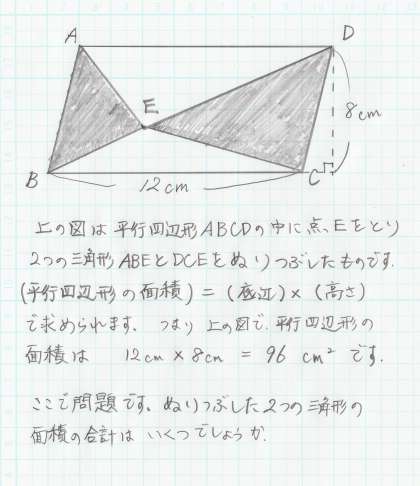 A
D
E
8cm
B
12cm
C
上の図は平行四辺形ABCDの中に点、Eをとり
2つの三角形ABEとDCEをぬりつぶしたものです.
(平行四辺形の面積) = (底辺) × (高さ)
で求められます. つまり上の図で、平行四辺形の
面積は 12cm × 8cm = 96 cm² です.
ここで問題です、ぬりつぶした2つの三角形の
面積の合計はいくつでしょうか.